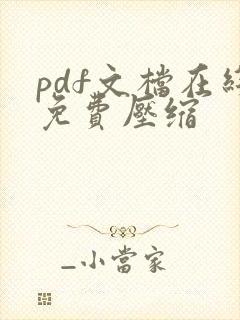 pdf文檔在線
免費壓縮
_小當家